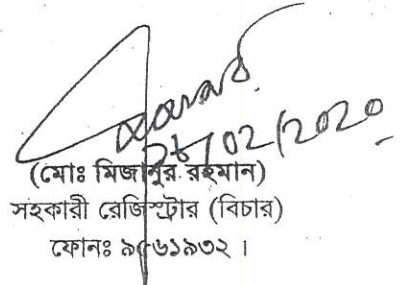 26/02/2020
(মোঃ মিজানুর রহমান)
সহকারী রেজিস্ট্রার (বিচার)
ফোনঃ ৯৫৬১৯৩২ ।